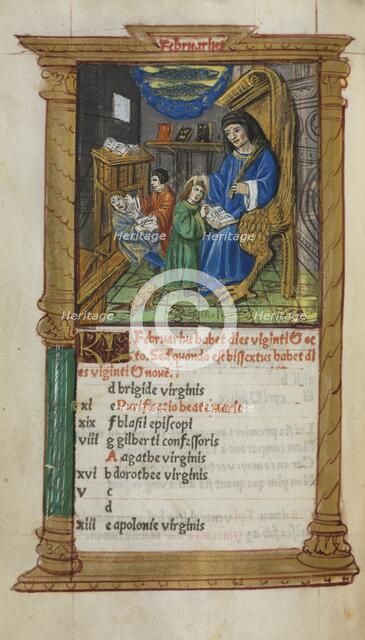 Februarius
Februarius habet dies viginti & oc
to. Sed quando est bissextus habet di
es viginti & novē.
d brigide virginis
xi e Purificatio beate marie
xix f blasii episcopi
viii g gilberti confessoris
A agathe virginis
xvi b dorothee virginis
v c
d
xiii e apolonie virginis
Heritage
Heritage
Heritage
Heritage
Heritage
Heritage
Heritage
Heritage